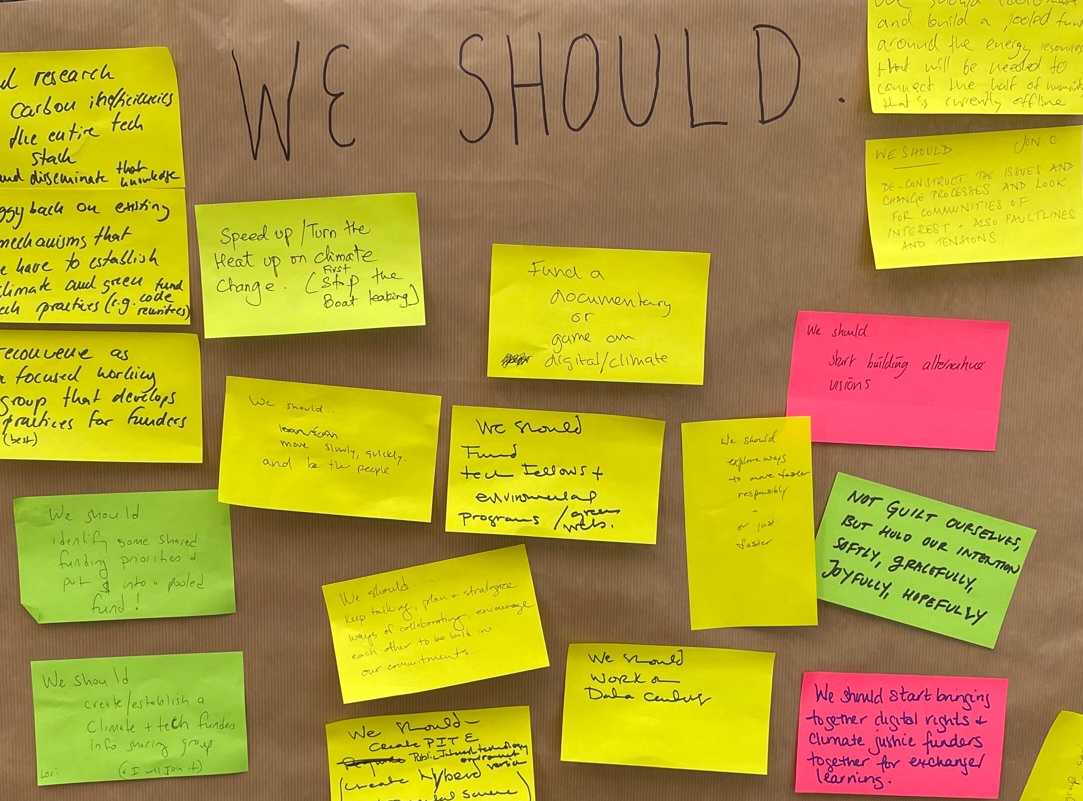 WE SHOULD.
research
carbon inefficiencies
the entire tech
stack
and disseminate that
knowledge
back on existing
mechanisms that
have to establish
climate and green fund
practices (e.g. code
rewrites)
reconvene as
focused working
group that develops
practices for funders
(best)
We should
identify some shared
funding priorities +
put $ into a pooled
fund!
We should
create/establish a
Climate + tech funders
info sharing group
(I will join it)
Lori
Speed up/Turn the
Heat up on climate
Change. (First Stop the
Boat leaking)
We should...
move slowly, quickly.
and be the people
Fund a
documentary
or
game on
digital/climate
We should
Fund
tech fellows +
environmental
programs /green
webs.
We should
keep talking, plan + strategize
ways of collaborating, encourage
each other to be bold in
our commitments.
We should
create PIT E
Public Interest technology
environment
version
(create hybrid
We should
work on
Data centers
We should
explore ways
to move faster
responsibly
-
or just
faster
and build a pooled fund
around the energy resources
that will be needed to
connect the half of humanity
that's currently offline
WE SHOULD JON C
DE-CONSTRUCT THE ISSUES AND
CHANGE PROCESSES AND LOOK
FOR COMMUNITIES OF
INTEREST + ALSO FAULTLINES
AND TENSIONS
We should
start building alternative
visions
NOT GUILT OURSELVES,
BUT HOLD OUR INTENTION
SOFTLY, GRACEFULLY,
JOYFULLY, HOPEFULLY
We should start bringing
together digital rights +
climate justice funders
together for exchange/
learning.